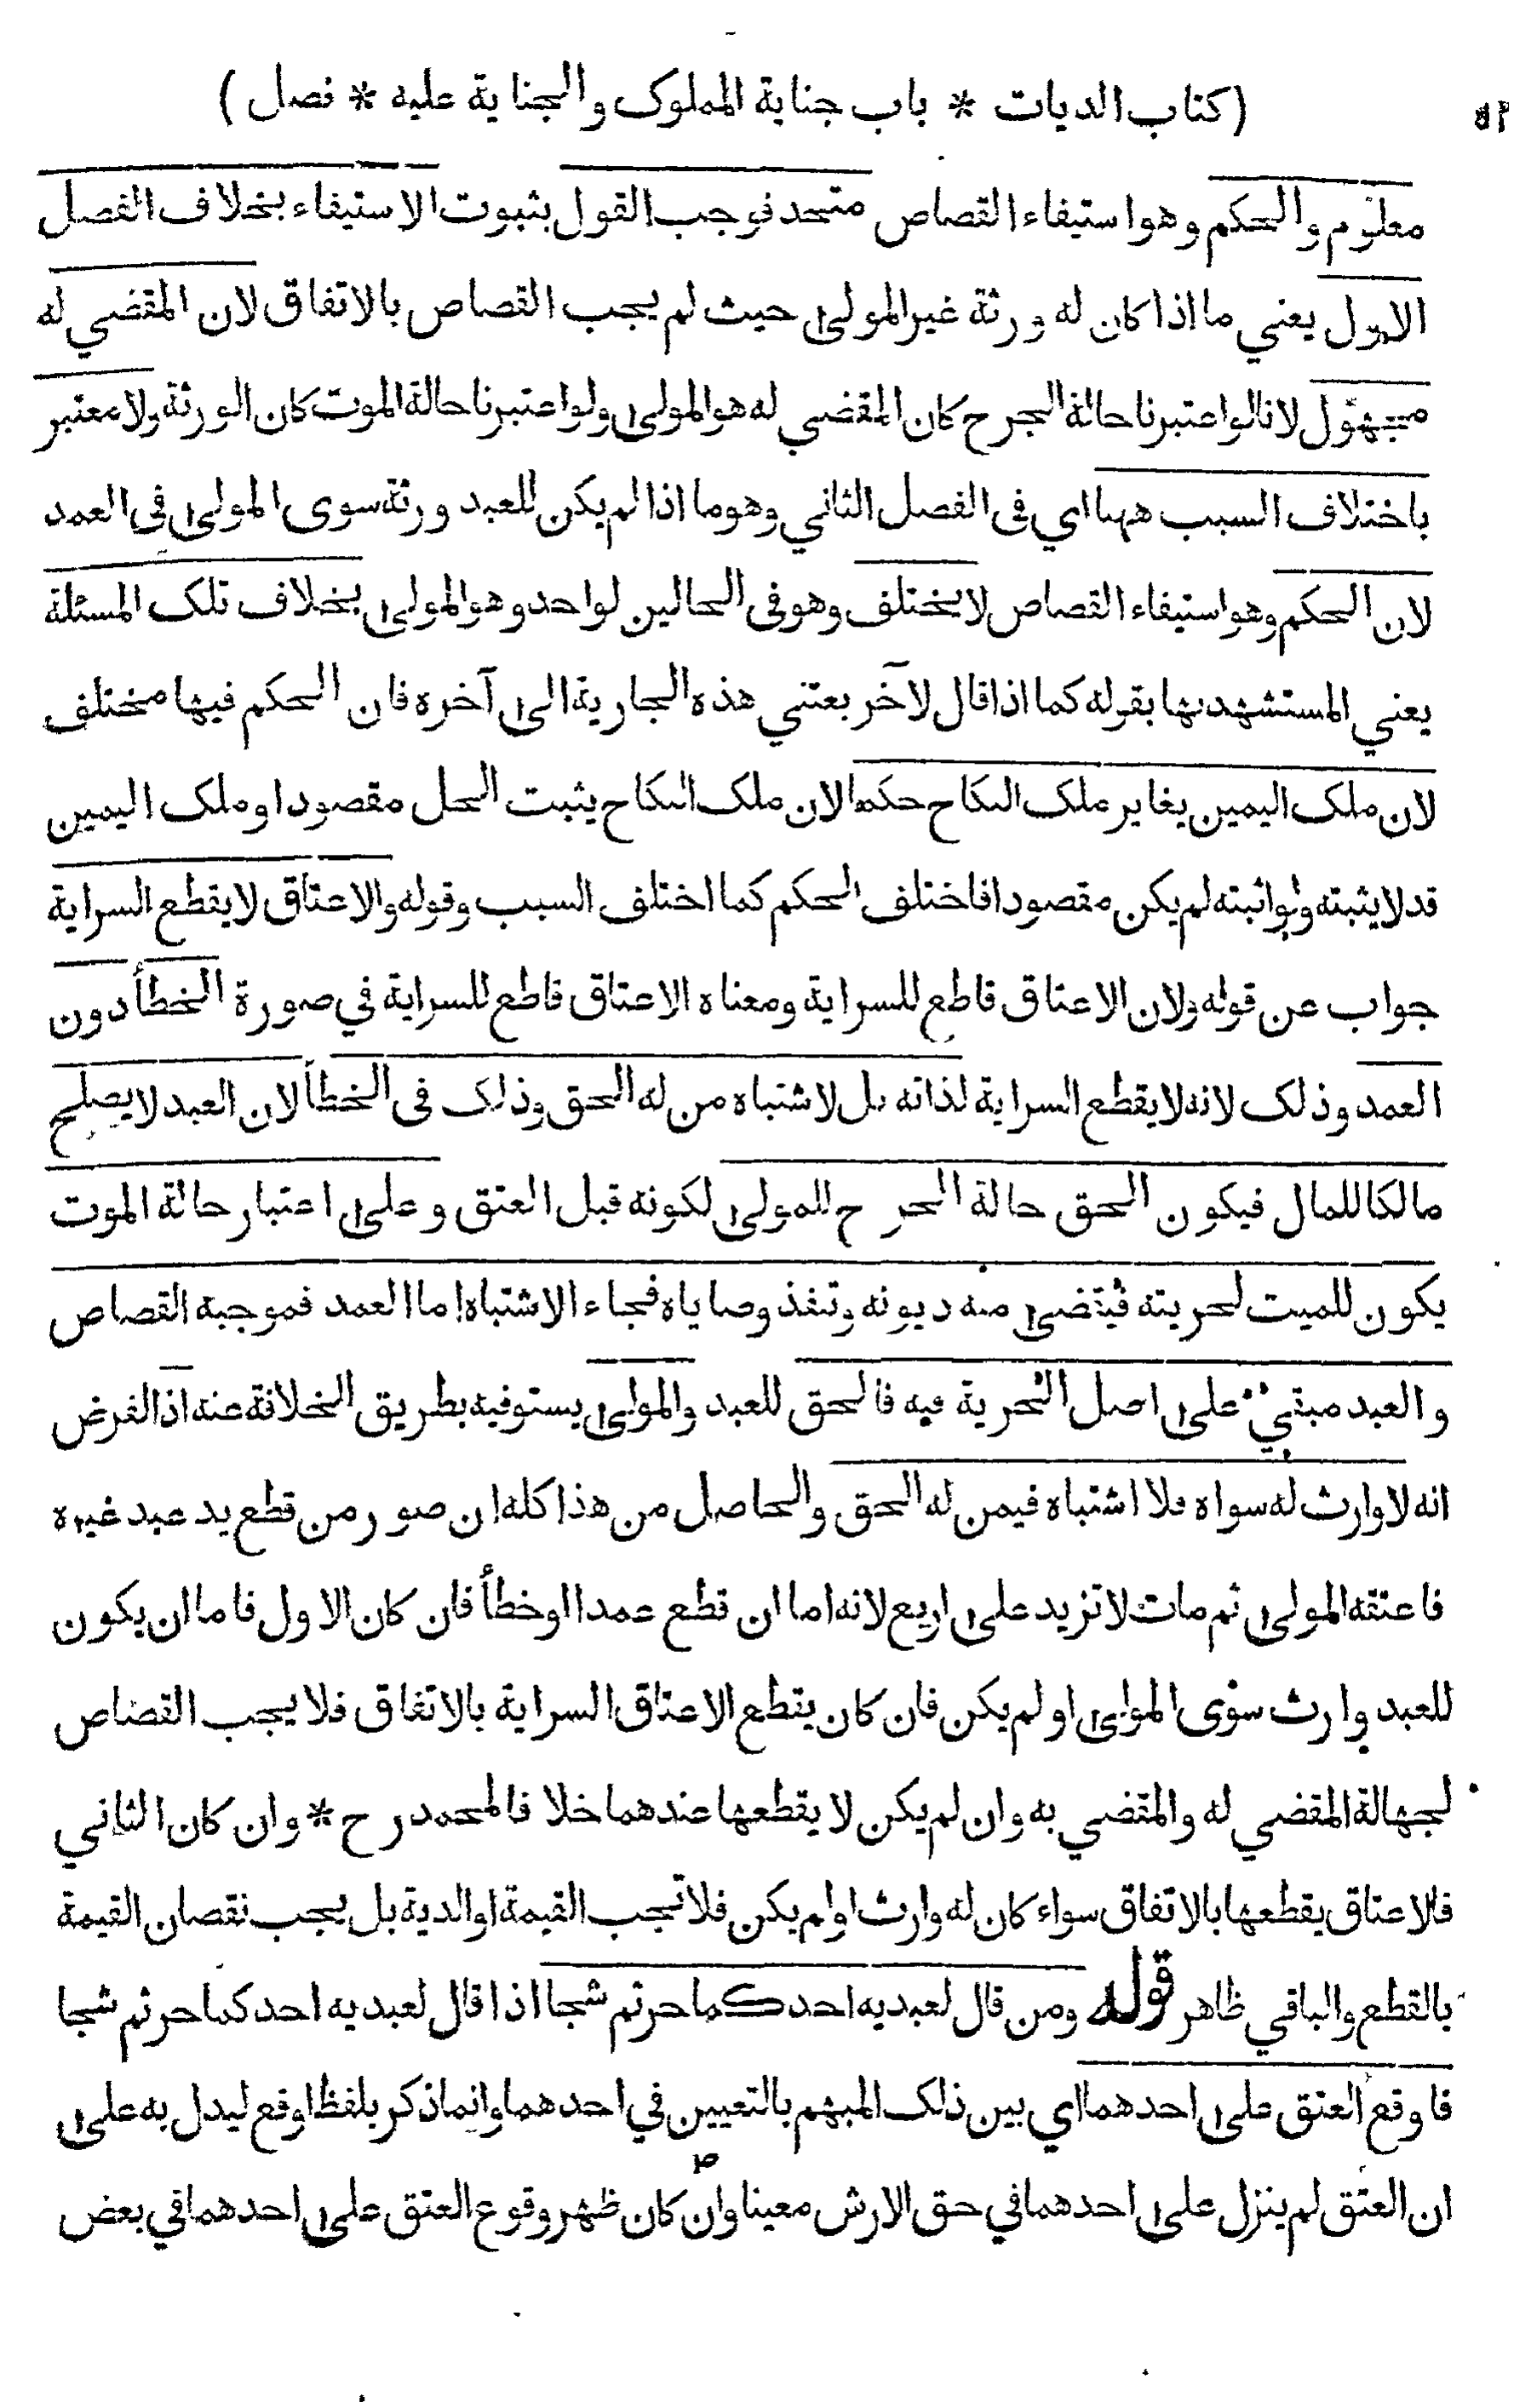 (كتاب الديات * باب جناية المملوك والجناية عليه * فصل)
معلوم والحكم وهو استيفاء القصاص متحد فوجب القول بثبوت الاستيفاء بخلاف الفصل
الاول يعني ما اذا كان له ورثة غير المولى حيث لم يجب القصاص بالاتفاق لان المقضي له
مجهول لانا لو اعتبرنا حالة الجرح كان المقضي له هو المولى ولو اعتبرنا حالة الموت كان الورثة ولا معتبر
باختلاف السبب ههنا اي فى الفصل الثاني وهو ما اذا لم يكن للعبد ورثة سوى المولى فى العمد
لان الحكم وهو استيفاء القصاص لا يختلف وهو فى الحالين لواحد وهو المولى بخلاف تلك المسئلة
يعني المستشهد بها بقوله كما اذا قال لآخر بعتني هذه الجارية الى آخره فان الحكم فيها مختلف
لان ملك اليمين يغاير ملك النكاح حكما لان ملك النكاح يثبت الحل مقصودا وملك اليمين
قد لا يثبته ولو اثبته لم يكن مقصودا فاختلف الحكم كما اختلف السبب وقوله والاعتاق لا يقطع السراية
جواب عن قوله ولان الاعتاق قاطع للسراية ومعناه الاعتاق قاطع للسراية في صورة الخطأ دون
العمد وذلك لانه لا يقطع السراية لذاته بل لاشتباه من له الحق وذلك فى الخطأ لان العبد لا يصلح
مالكا للمال فيكون الحق حالة الجرح للمولى لكونه قبل العتق وعلى اعتبار حالة الموت
يكون للميت لحريته فيقضى منه ديونه وتنفذ وصاياه فجاء الاشتباه اما العمد فموجبه القصاص
والعبد مبقي على اصل الحرية فيه فالحق للعبد والمولى يستوفيه بطريق الخلافة عنه اذ الفرض
انه لا وارث له سواه فلا اشتباه فيمن له الحق والحاصل من هذا كله ان صور من قطع يد عبد غيره
فاعتقه المولى ثم مات لا تزيد على اربع لانه اما ان قطع عمدا او خطأ فان كان الاول فاما ان يكون
للعبد وارث سوى المولى او لم يكن فان كان يقطع الاعتاق السراية بالاتفاق فلا يجب القصاص
لجهالة المقضي له والمقضي به وان لم يكن لا يقطعها عندهما خلافا لمحمد رح * وان كان الثاني
فالاعتاق يقطعها بالاتفاق سواء كان له وارث او لم يكن فلا تجب القيمة او الدية بل يجب نقصان القيمة
بالقطع والباقي ظاهر قوله ومن قال لعبديه احدكما حر ثم شجا اذا قال لعبديه احدكما حر ثم شجا
فاوقع العتق على احدهما اي بين ذلك المبهم بالتعيين في احدهما وانما ذكر بلفظ اوقع ليدل به على
ان العتق لم ينزل على احدهما في حق الارش معينا وان كان ظهر وقوع العتق على احدهما في بعض